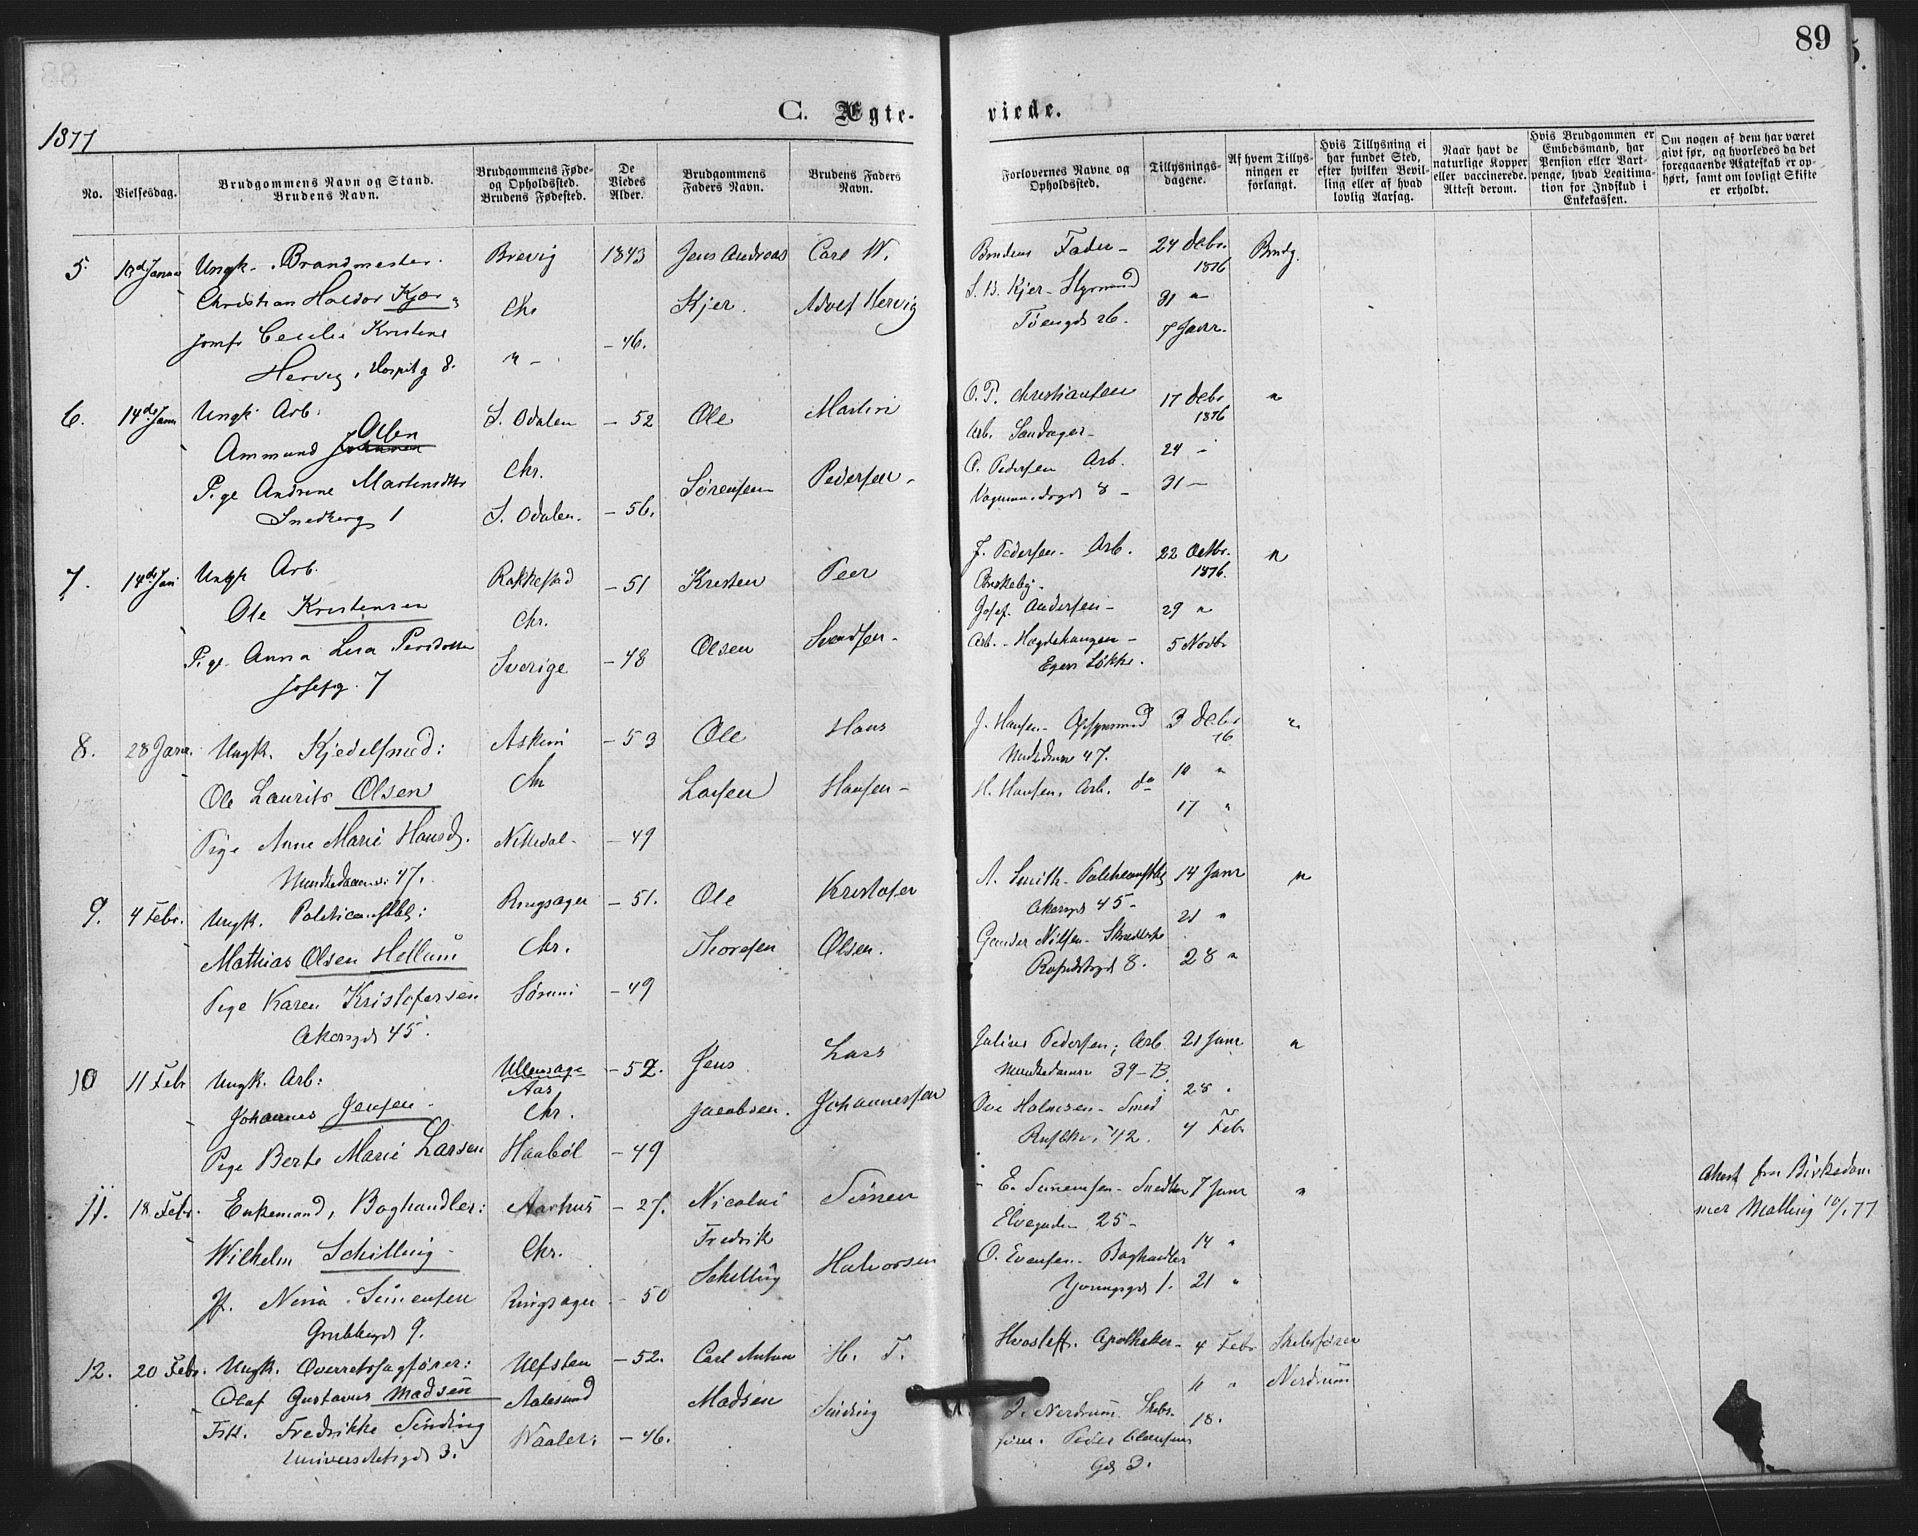 89
C. Ægte-
viede.
1877
No.
Vielsesdag.
Brudgommens Navn og Stand.
Brudens Navn.
Brudgommens Føde-
og Opholdssted.
Brudens Fødested.
De
Viedes
Alder.
Brudgommens
Faders Navn.
Brudens Faders
Navn.
Forlovernes Navne og
Opholdssted.
Tillysnings-
dagene.
Af hvem Tillys-
ningen er
forlangt.
Hvis Tillysning ei
har fundet Sted,
efter hvilken Bevil-
ling eller af hvad
lovlig Aarsag.
Naar havt de
naturlige Kopper
eller vaccinerede.
Attest derom.
Hvis Brudgommen er
Embedsmand, har
Pension eller Vart-
penge, hvad Legitima-
tion for Indskud i
Enkekassen.
Om nogen af dem har været
givt før, og hvorledes da det
foregaaende Ægteskab er op-
hørt, samt om lovligt Skifte
er erholdt.
5. Ungk. Brandmester. Brevig 1843 Jens Andreas Carl W. Brudens Fader - 24 Debr. 1876 Brudg.
Christian Haldor Kjær Chr Kjer. Adolf Hervig S. B. Kjer - Styrmand 31 "
Jomfr Cecilie Kristine " - - 46. Tøiengd 26. 7 Janr.
Hervig, Hospitg 8.
6. 14de Janr Ungk. Arb. S. Odalen - 52 Ole Martin O. P. Christiansen 17 Debr 1876 "
Ammund Olsen Chr. Arb. Sandager - 24 -
Pige Andrine Martinsdtr Sørensen Pedersen - O. Pedersen Arb. 31 -
Snedkerg 1 S. Odalen. - 56. 8 -
7. 14de Jan Ungk Arb. Rakkestad - 51 Kristen Peer J. Pedersen - Arb. 22 Octbr. 1876. "
Ole Kristensen Chr. Josef Andersen - 29 "
Pige Anna Lisa Persdotter Sverige - 48 Olsen Svendsen - Arb. - Hægdehaugen - 5 Novbr
Josefg. 7 Egers Løkke.
8. 28 Janr. Ungk. Kjedelsmed: Askim - 53 Ole Hans J. Hansen - 3 Debr 76 "
Ole Laurits Olsen Chr Larsen Hansen - Munkedamsv 47. 10 "
Pige Anne Marie Hansd. Nittedal - - 49 H. Hansen. Arb. do 17 "
Munkedamsv: 47.
9. 4 Febr. Ungk. Politiconstbl: Ringsager - 51. Ole Kristofer A. Smith - Politiconstbl 14 Janr "
Mathias Olsen Hellum Chr. Thoresen Olsen. Akersgd 45 - 21 "
Pige Karen Kristofersen Sørum - 49 Gunder Nilsen - 28 "
Akersgd 45. 8.
10 11 Febr Ungk. Arb: Ullensager Aas - 52. Jens Lars Julius Pedersen; Arb 21 Janr "
Johannes Jensen - Chr. Jacobsen. Johannessen Munkedamsv 39 - B. 28 "
Pige Berte Marie Larsen Haabøl - 49 Ove Halvorsen - Smed 4 Febr
42.
11. 18 Febr. Enkemand, Boghandler: Aarhus - 27. Nicolai Simen E. Simensen - Snedker 7 Janr " Attest fra
Wilhelm Schilling - Chr. Fredrik Elvegaden 25 - 14 " Malling 10/1 77
Jf. Nina Simensen Ringsager - 50 Schilling Halvorsen O. Evensen - Boghandler 21 "
Grubbegd 9. Youngsgd 1.
12. 20 Febr. Ungk. Overretssagfører: Ulfsten - 52. Carl Anton H. F. Hvoslef. Apotheker - 4 Febr Skibsfører
Olaf Gustavus Madsen Aalesund Madsen Sinding 11 " Nerdrum
Frk. Fredrikke Sinding Waaler: - 46. Nerdrum Skibs- 18.
Universitetsgd 3. fører. Peder Clausens
Gd 3.